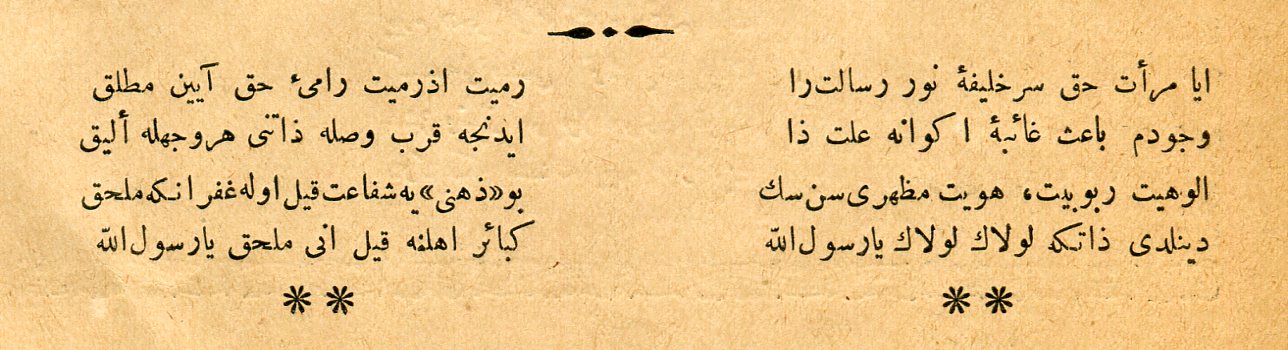 ايا مرأت حق سر خليفۀ نور رسالت‌را
وجودم باعث غائبۀ اكوانه علت ذا
الوهيت ربوبيت، هويت مظهرى سن سك
دينلدى ذاتكه لولاك لولاك يارسول الله
رميت اذرميت رامئ حق آيين مطلق
ايدنجه قرب وصله ذاتنى هروجهله أليق
بو «ذهنى» يه شفاعت قيل اوله غفرانكه ملحق
كبائر اهلنه قيل انى ملحق يارسول الله